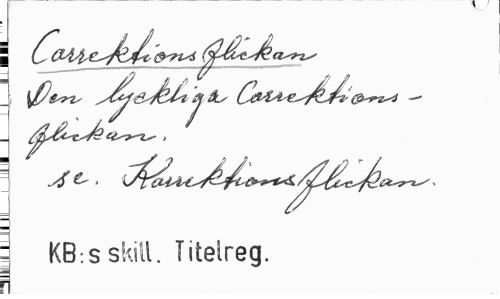 Correktionsflickan
Den lyckliga Correktions-
flickan.
se. Korrektionsflickan.
KB:s skill. Titelreg.